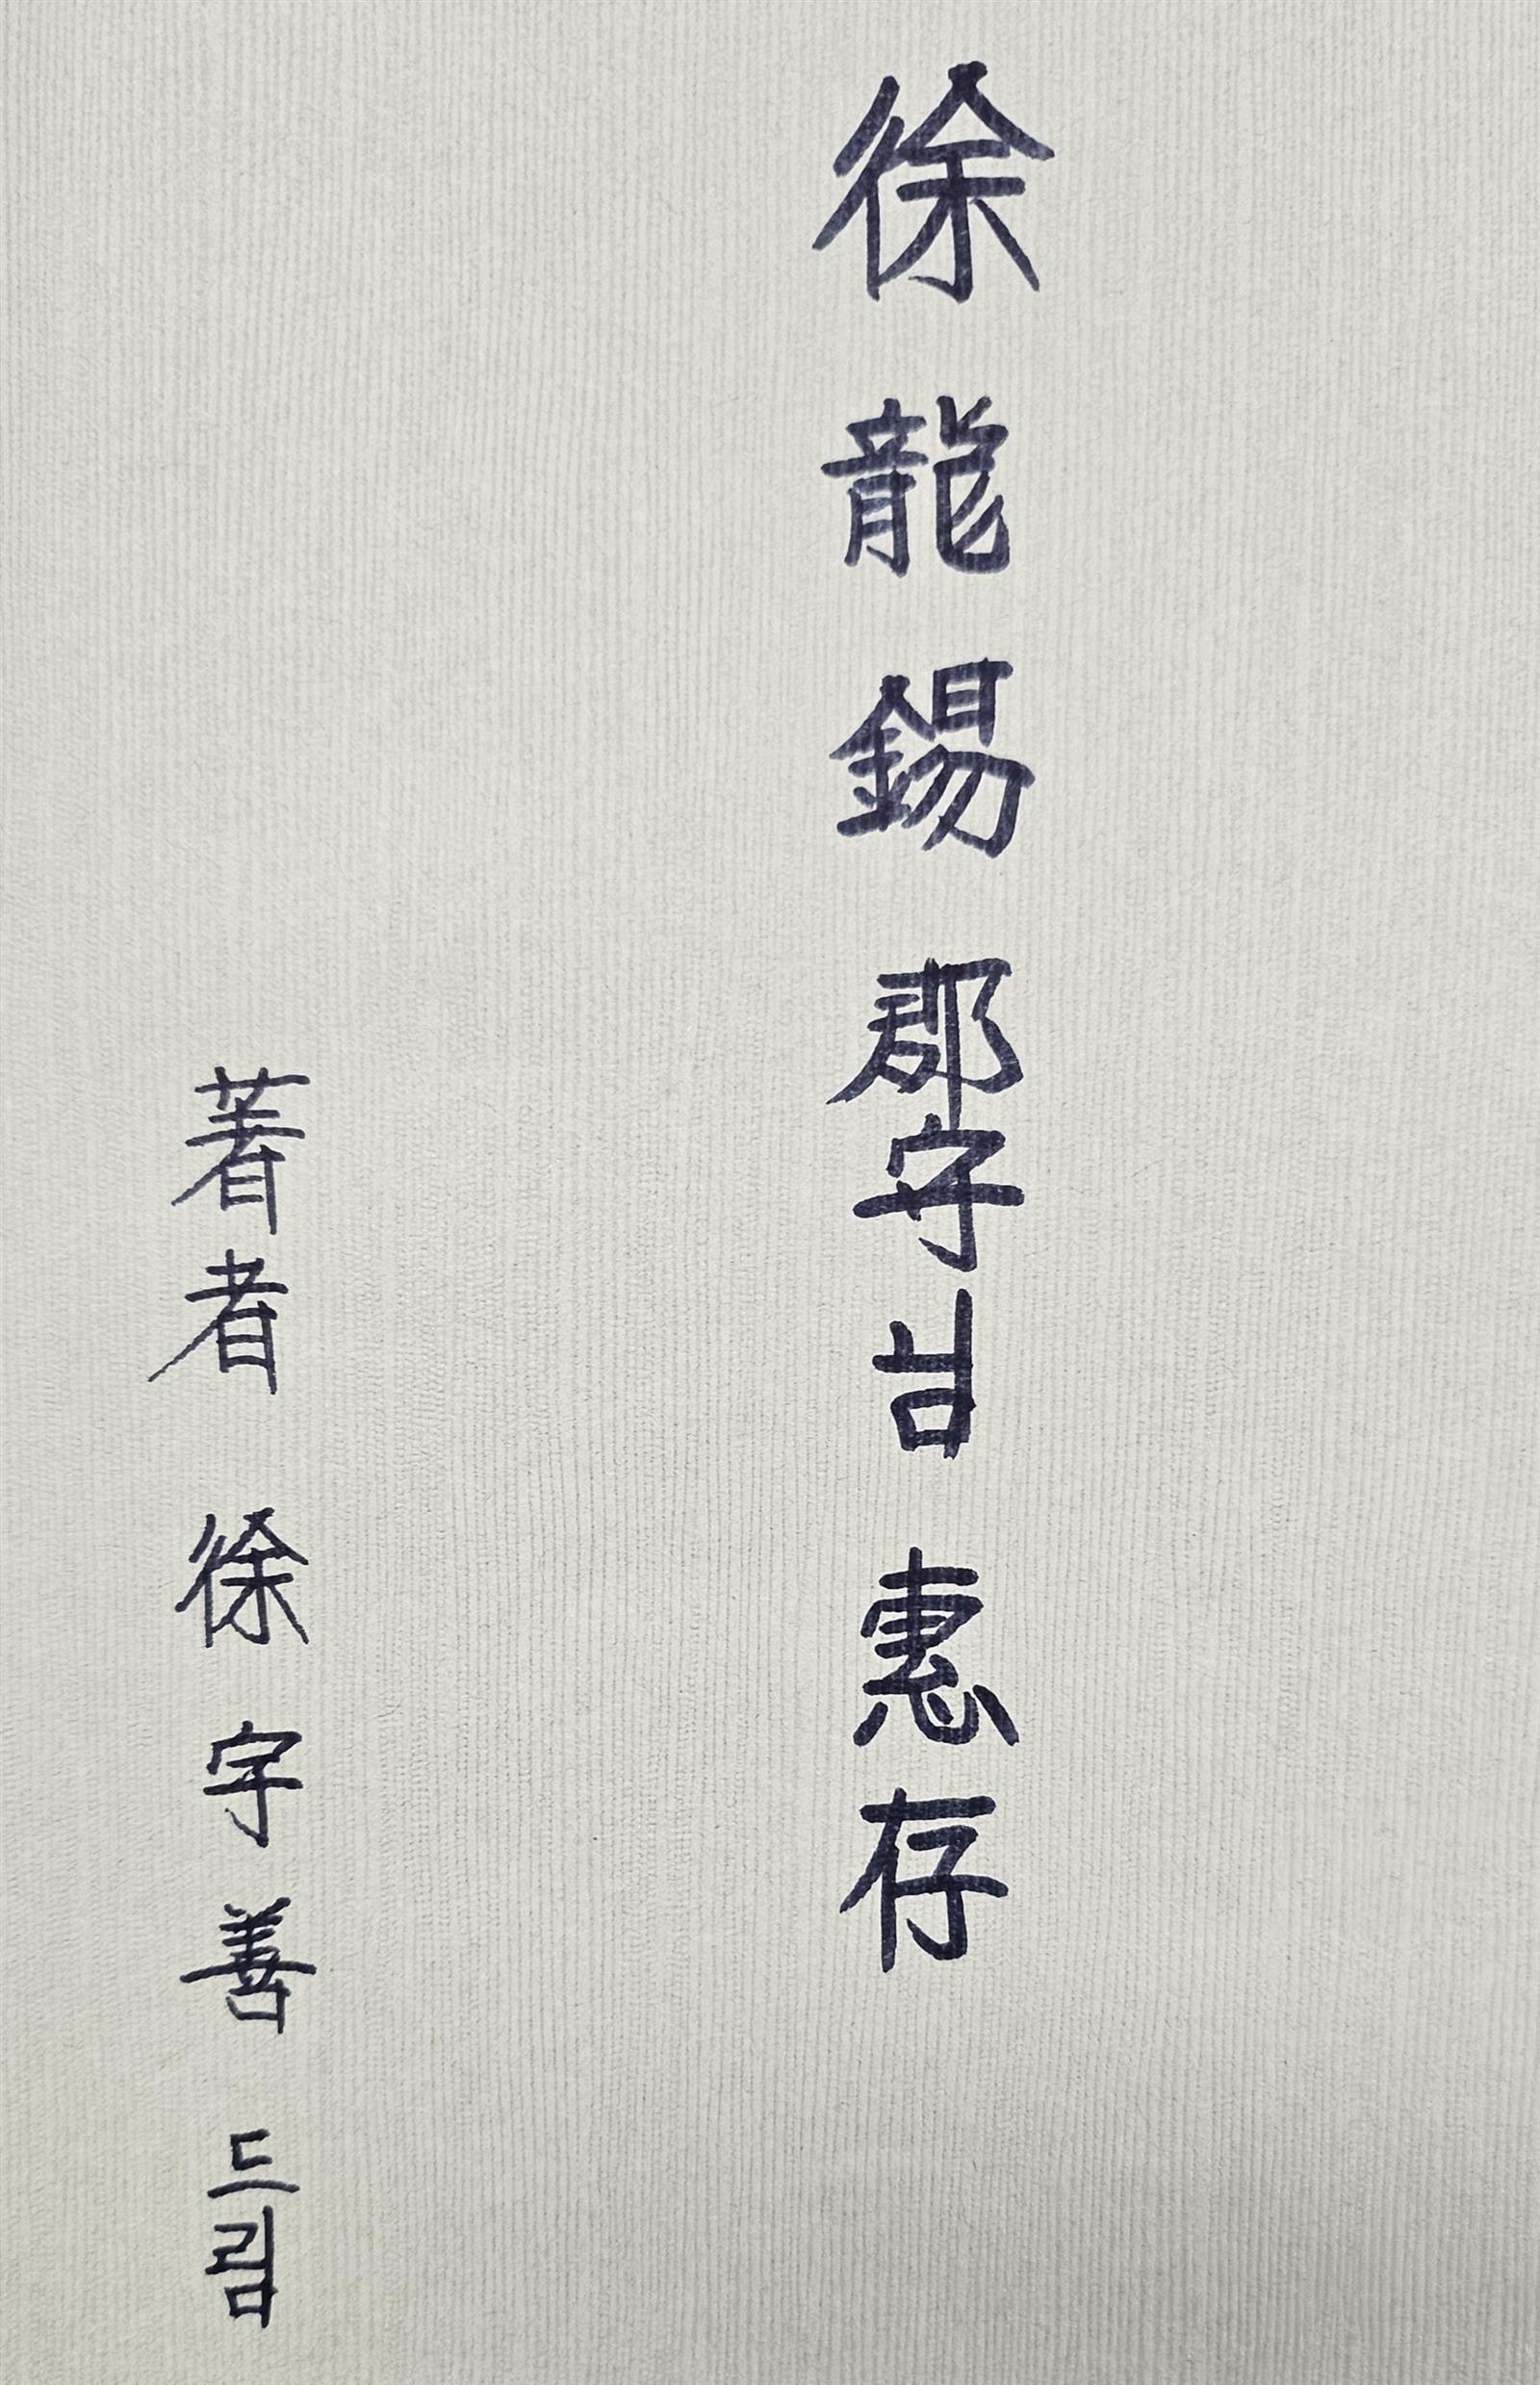 徐 龍 錫 郡守님 惠存
著者 徐 宇 善 드림